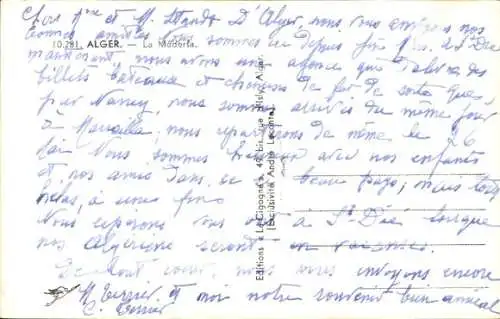 Chers Mme et M. Stands D'Alger, nous vous envoyons nos
bonnes amitiés sommes ici depuis fin de St Dié
10.281. ALGER. - La Madona.
maintenant, nous avons une agence que délivre des
billets bateaux et chemins de fer de sorte que,
par Nancy, nous sommes arrivés du même jour
à Marseille, nous repartirons de même le 26
Nous sommes heureux avec nos enfants
et nos amis dans ce beau pays, mais tout
hélas, a une fin.
Nous espérons vous à St Dié lorsque
nos Algériens seront en vacances.
nous vous envoyons encore
M. Terrier et moi notre souvenir bien amical
C. Terrier
Editions « La Cigogne », 49, bis, rue d'Isly, Alger
(Exclusivité André Leconte)